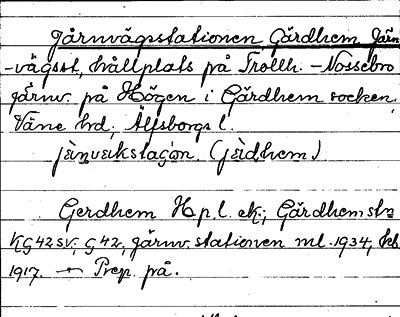 Järnvägsstationen Gärdhem, Järn
-vägsst, hållplats på Trollh. - Nossebro
järnv. på Högen i Gärdhem socken,
Väne hrd; Älfsborgs l.
(jèrdhem)
Gerdhem Hp. l. ek; Gärdhem stn
KG42sv; G42; järnv. stationen ml. 1934,
1917. → Prep. på.